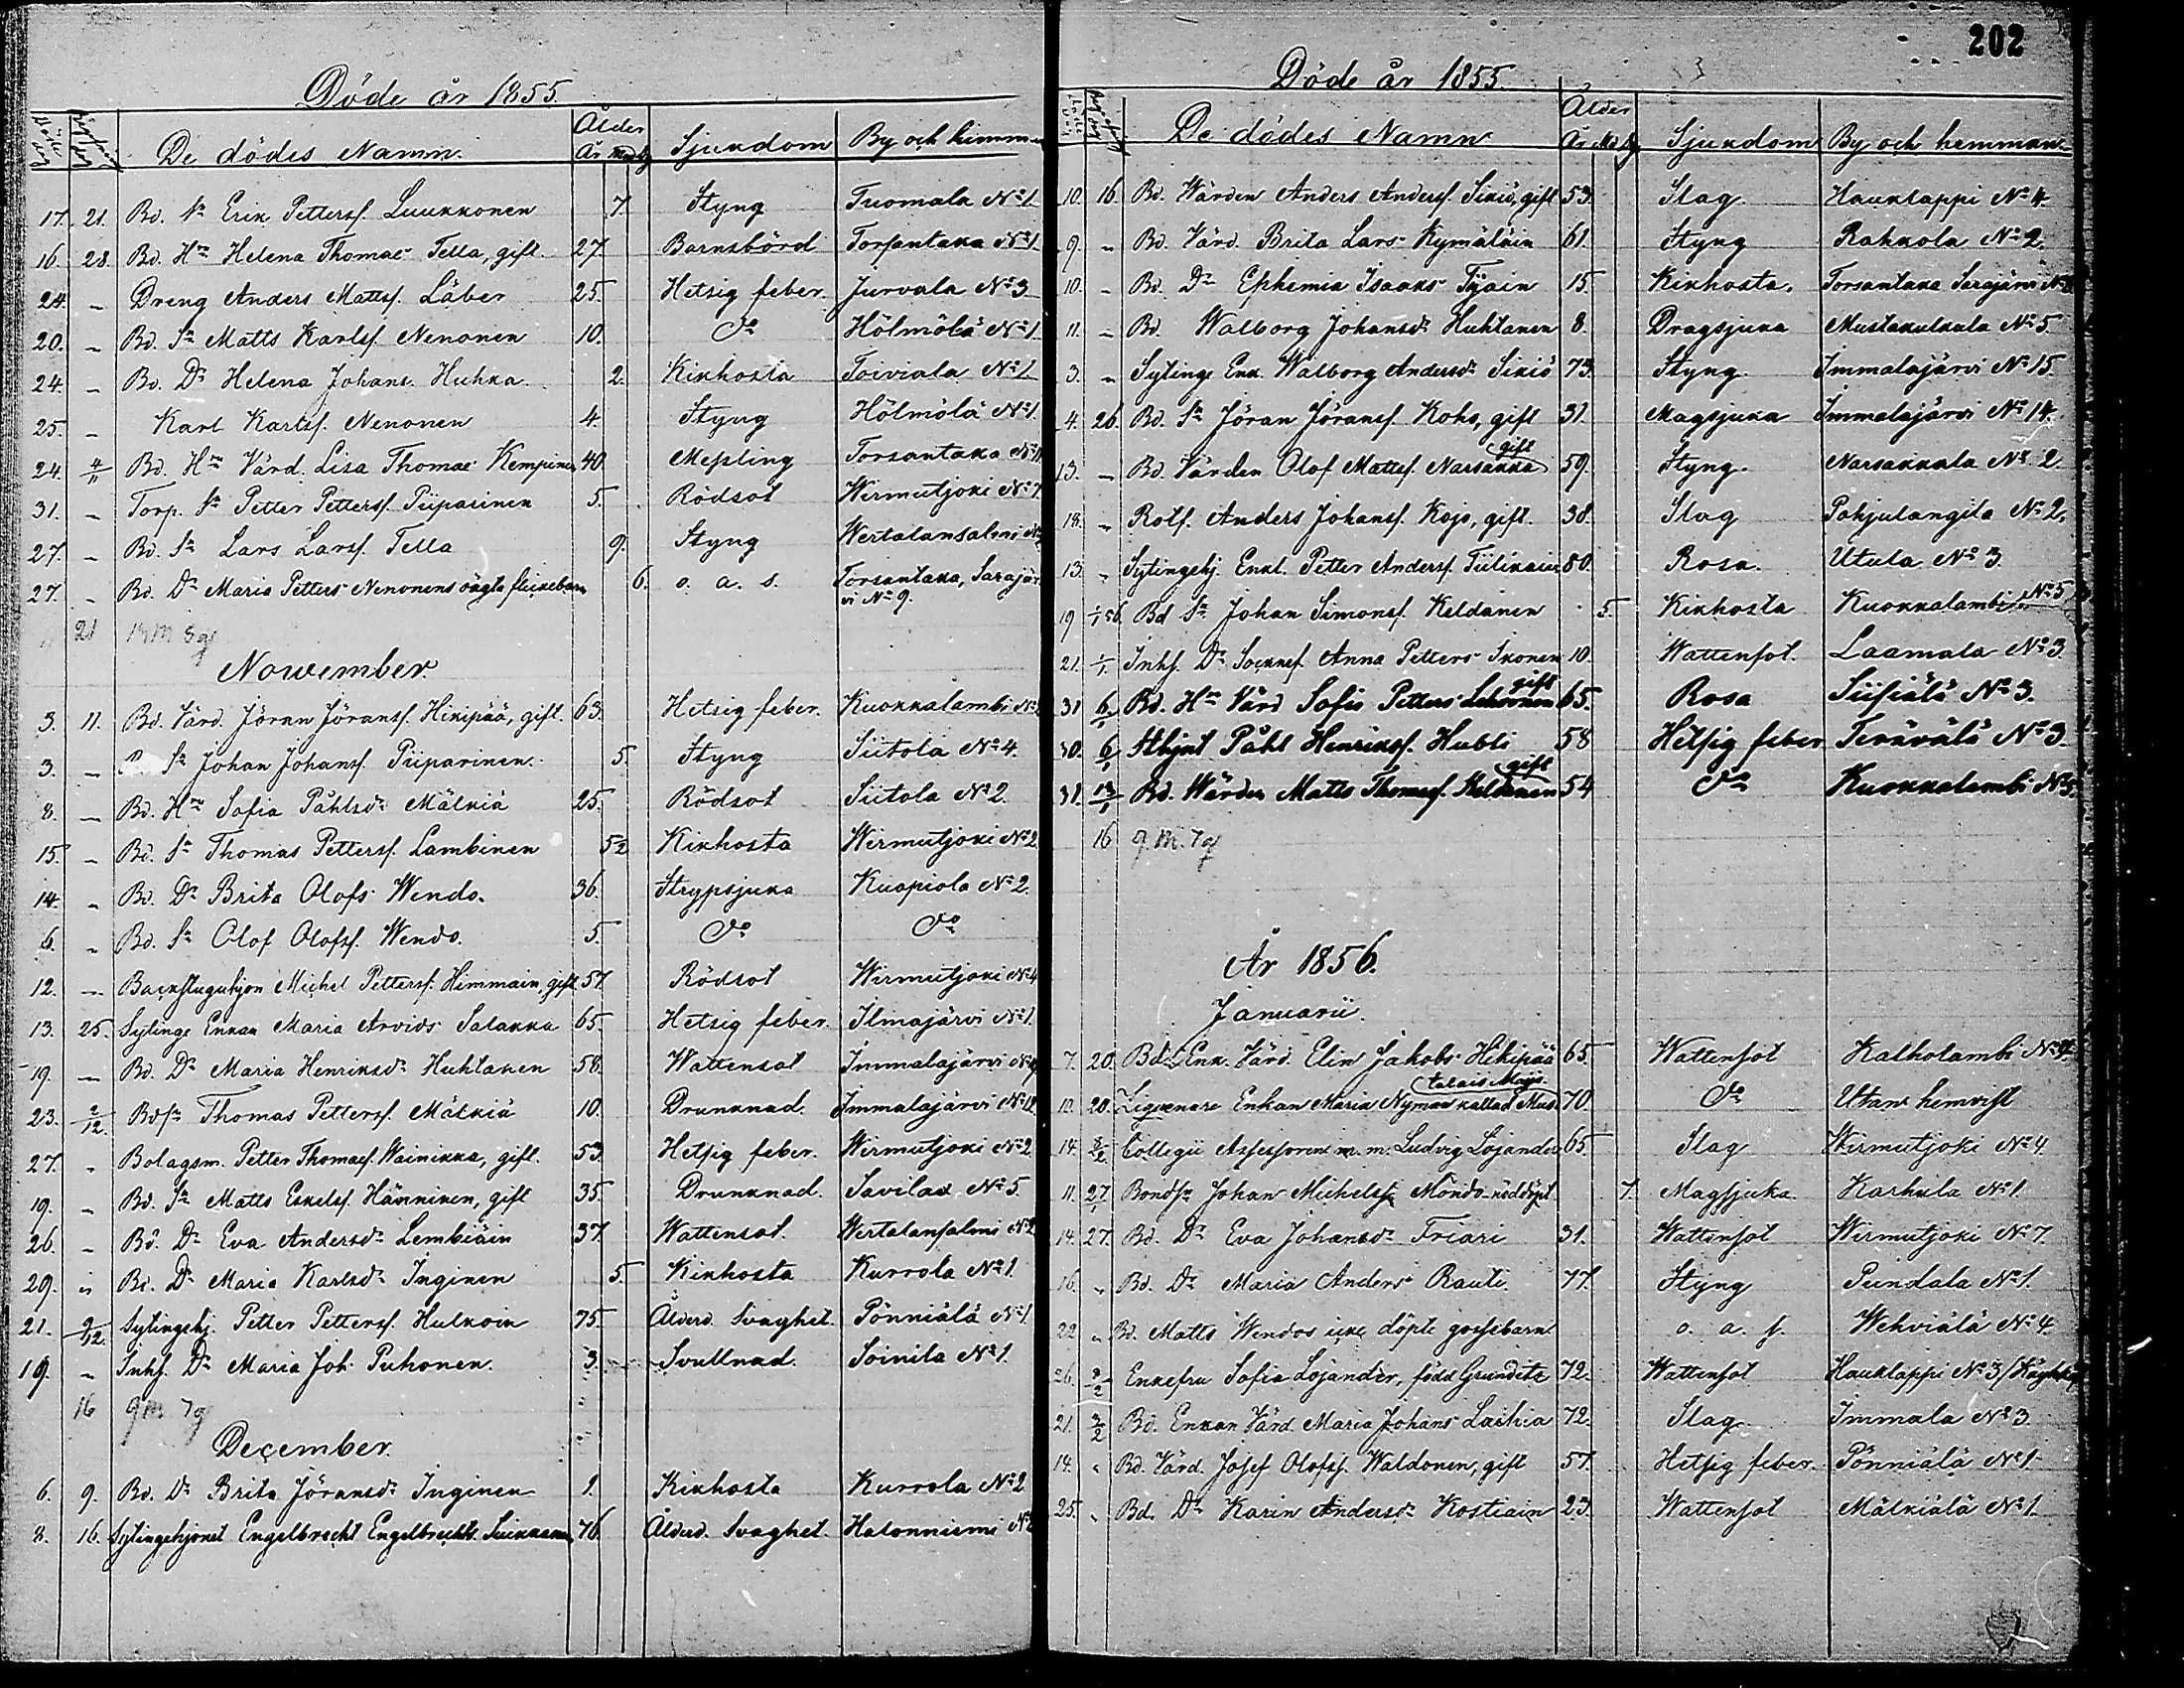 Döde år 1855.
De dödes Namn. Ålder År Mån Dg Sjukdom By och hemman
17. 21. Bd. Sn Erik Petterss. Luukkonen 7. Styng Tuomala No 1
16. 28. Bd. Hu Helena Thomae Tella, gift. 27. Barnsbörd Torsantaka No 1.
24. - Dreng Anders Mattss. Läber 25. Hetsig feber. Jurvala No 3
20. - Bd. Sn Matts Karlss. Nenonen 10. Do Hölmölä No 1.
24. - Bd. Dr Helena Johans. Huhka. 2. Kikhosta Toiviala No 1
25. - Karl Karlss. Nenonen 4. Styng Hölmölä No 1.
24. 4/11 Bd. Hu Värd. Lisa Thomae Kempinen 40. Messling Torsantaka No 11
31. - Torp. Sn Petter Petterss. Piiparinen 5. Rödsot Wirmutjoki No 7.
27. - Bd. Sn Lars Larss. Tella 9. Styng Wertalansalmi No
27. - Bd. Dr Maria Petters Nenonens oägta flickebarn 6. o. a. s. Torsantaka, Sarajär-
vi No 9.
21
Nowember.
3. 11. Bd. Värd. Jöran Jöranss. Hikipää, gift. 63. Hetsig feber. Kuokkalambi No
3. - Sn Johan Johanss. Piiparinen. 5. Styng Siitola No 4.
8. - Bd. Hu Sofia Påhlsdr Mälkiä 25. Rödsot Siitola No 2.
15. - Bd. Sn Thomas Petterss. Lambinen 5 1/2 Kikhosta Wirmutjoki No 2
14. - Bd. Dr Brita Olofs Wendo. 36. Strypsjuka Kuopiola No 2.
6. - Bd. Sn Olof Olofss. Wendo. 5. Do Do
12. - Backstuguhjon Michel Petterss. Himmain, gift. 57 Rödsot Wirmutjoki No 4
13. 25. Sytinge Enkan Maria Arvids Salakka 65. Hetsig feber. Ilmajärvi No 1.
19. - Bd. Dr Maria Henriksdr Huhtanen 58. Wattensot Immalajärvi No
23. 2/12. Bdsn Thomas Petterss. Mälkiä 10. Drunknad. Immalajärvi No 12
27. - Bolagsm. Petter Thomaess. Wainikka, gift. 53. Hetsig feber. Wirmutjoki No 2
19. - Bd. Sn Matts Eskelss. Hänninen, gift 35. Drunknad. Savilax No 5.
26. - Bd. Dr Eva Andersdr Lembiäin 37 Wattensot. Wertalansalmi No 2
29. - Bd. Dr Maria Karlsdr Inginen 5. Kikhosta Kurrola No 1.
21. 2/12. Sytingehj. Petter Petterss. Hulkoin 75 Ålderd. Svaghet. Pönniälä No 1
19. - Inhs. Dr Maria Joh. Puhonen. 3. Svullnad. Soinila No 1.
16 9 m 7 q
December.
6. 9. Bd. Dr Brita Jöransdr Inginen 1. Kikhosta Kurrola No 2
8. 16. Sytingehjonet Engelbrecht Engelbrechts. 76. Ålderd. Svaghet. Hatonniemi No
202
Döde år 1855.
De dödes Namn Ålder År Må Dg Sjukdom By och hemman
10. 16. Bd. Värden Anders Anderss. Sikiö, gift 53. Slag. Hauklappi No 4.
9. - Bd. Värd. Brita Lars Kymäläin 61. Styng Rahkola No 2.
10. - Bd. Dr Ephemia Isaaks Tyäin 15. Kikhosta. Torsantaka Sarajärvi No
11. - Bd. Walborg Johansdr Huhtanen 8. Dragsjuka Mustakulkula No 5
3. - Sytinge Enk. Walborg Andersdr Sikiö 73. Styng. Immalajärvi No 15.
4. 26. Bd. Sn Jöran Jöranss. Koho, gift 31. Magsjuka Immalajärvi No 14.
13. - Bd. Värden Olof Mattss. Narsakka gift 59. Styng. Narsakkala No 2.
18. - Rotf. Anders Johanss. Kojo, gift. 38. Slag Pohjalangila No 2.
13. - Sytingehj. Enkl. Petter Anderss. Tiilikain 80. Rosa. Utula No 3.
19 1/1 56. Bd Sn Johan Simonss. Keldanen 5. Kikhosta Kuokkalambi No 5
21. 1/1. Inhs. Dr Socknef. Anna Petters Ikonen 10. Wattensot. Laamala No 3.
31 6/1 Bd. Hu Värd Sofia Petters gift 65. Rosa Siisiälä No 3.
30. 6/1 Sthjnt Påhl Henrikss. Hubli 58 Hetsig feber Terävälä No 3.
31. 13/1 Bd. Värden Matts Thomass. Keldanen gift 54 Do Kuokkalambi No 5.
16 9 m. 7 q
År 1856.
Januarii.
7. 20. Bds Enk. Värd. Elin Jakobs Hikipää 65. Wattensot Kalholambi No 4
12. 20. Ligenare Enkan Maria Nyman kallad talais Maijs 70. Do Utan hemvist
14. 8/2. Collegii Assessoren m. m. Ludvig Lojander 65. Slag Wirmutjoki No 4
11. 27/1 Bondsn Johan Michelss. Mondo nöddöpt 7. Magsjuka. Karhula No 1
14. 27. Bd. Dr Eva Johansdr Friari 31. Wattensot Wirmutjoki No 7
16. - Bd. Dr Maria Anders Rauti. 77. Styng Pundala No 1.
22 - Bd. Matts Wendos icke döpte gossebarn o. a. s. Wehviälä No 4.
26. 3/2 Enkefru Sofia Lojander, född Grundite 72. Wattensot Hauklappi No 3
21. 3/2 Bd. Enkan Värd. Maria Johans Laihia 72. Slag Immala No 3.
14. - Bd. Värd. Josef Olofss. Waldonen, gift 57. Hetsig feber. Pönniälä No 1.
25. - Bd. Dr Karin Andersdr Kostiain 23. Wattensot Mälkiälä No 1.